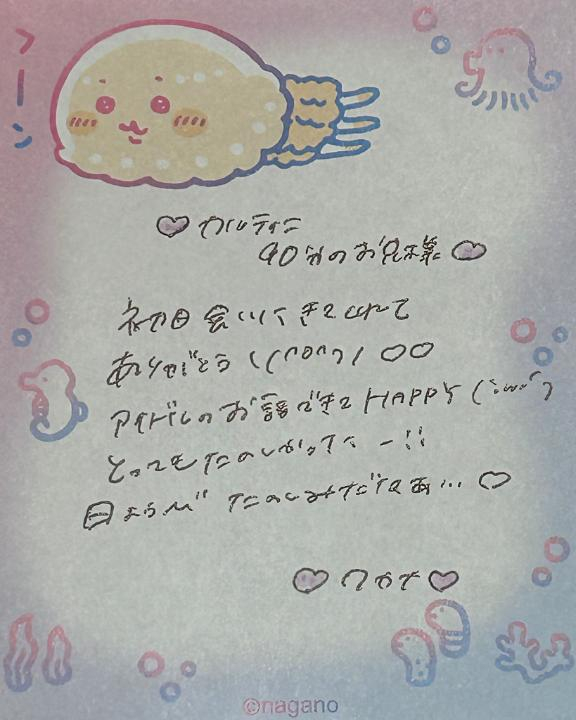 シーン
カルティニ
90分のお兄様
初日会いにきてくれて
ありがとう \(^o^)/ ♡♡
アイドルのお話できて HAPPY (´;ω;｀)
とってもたのしかったー!!
日ようび たのしみだなあ… ♡
♡ わかな ♡
©nagano